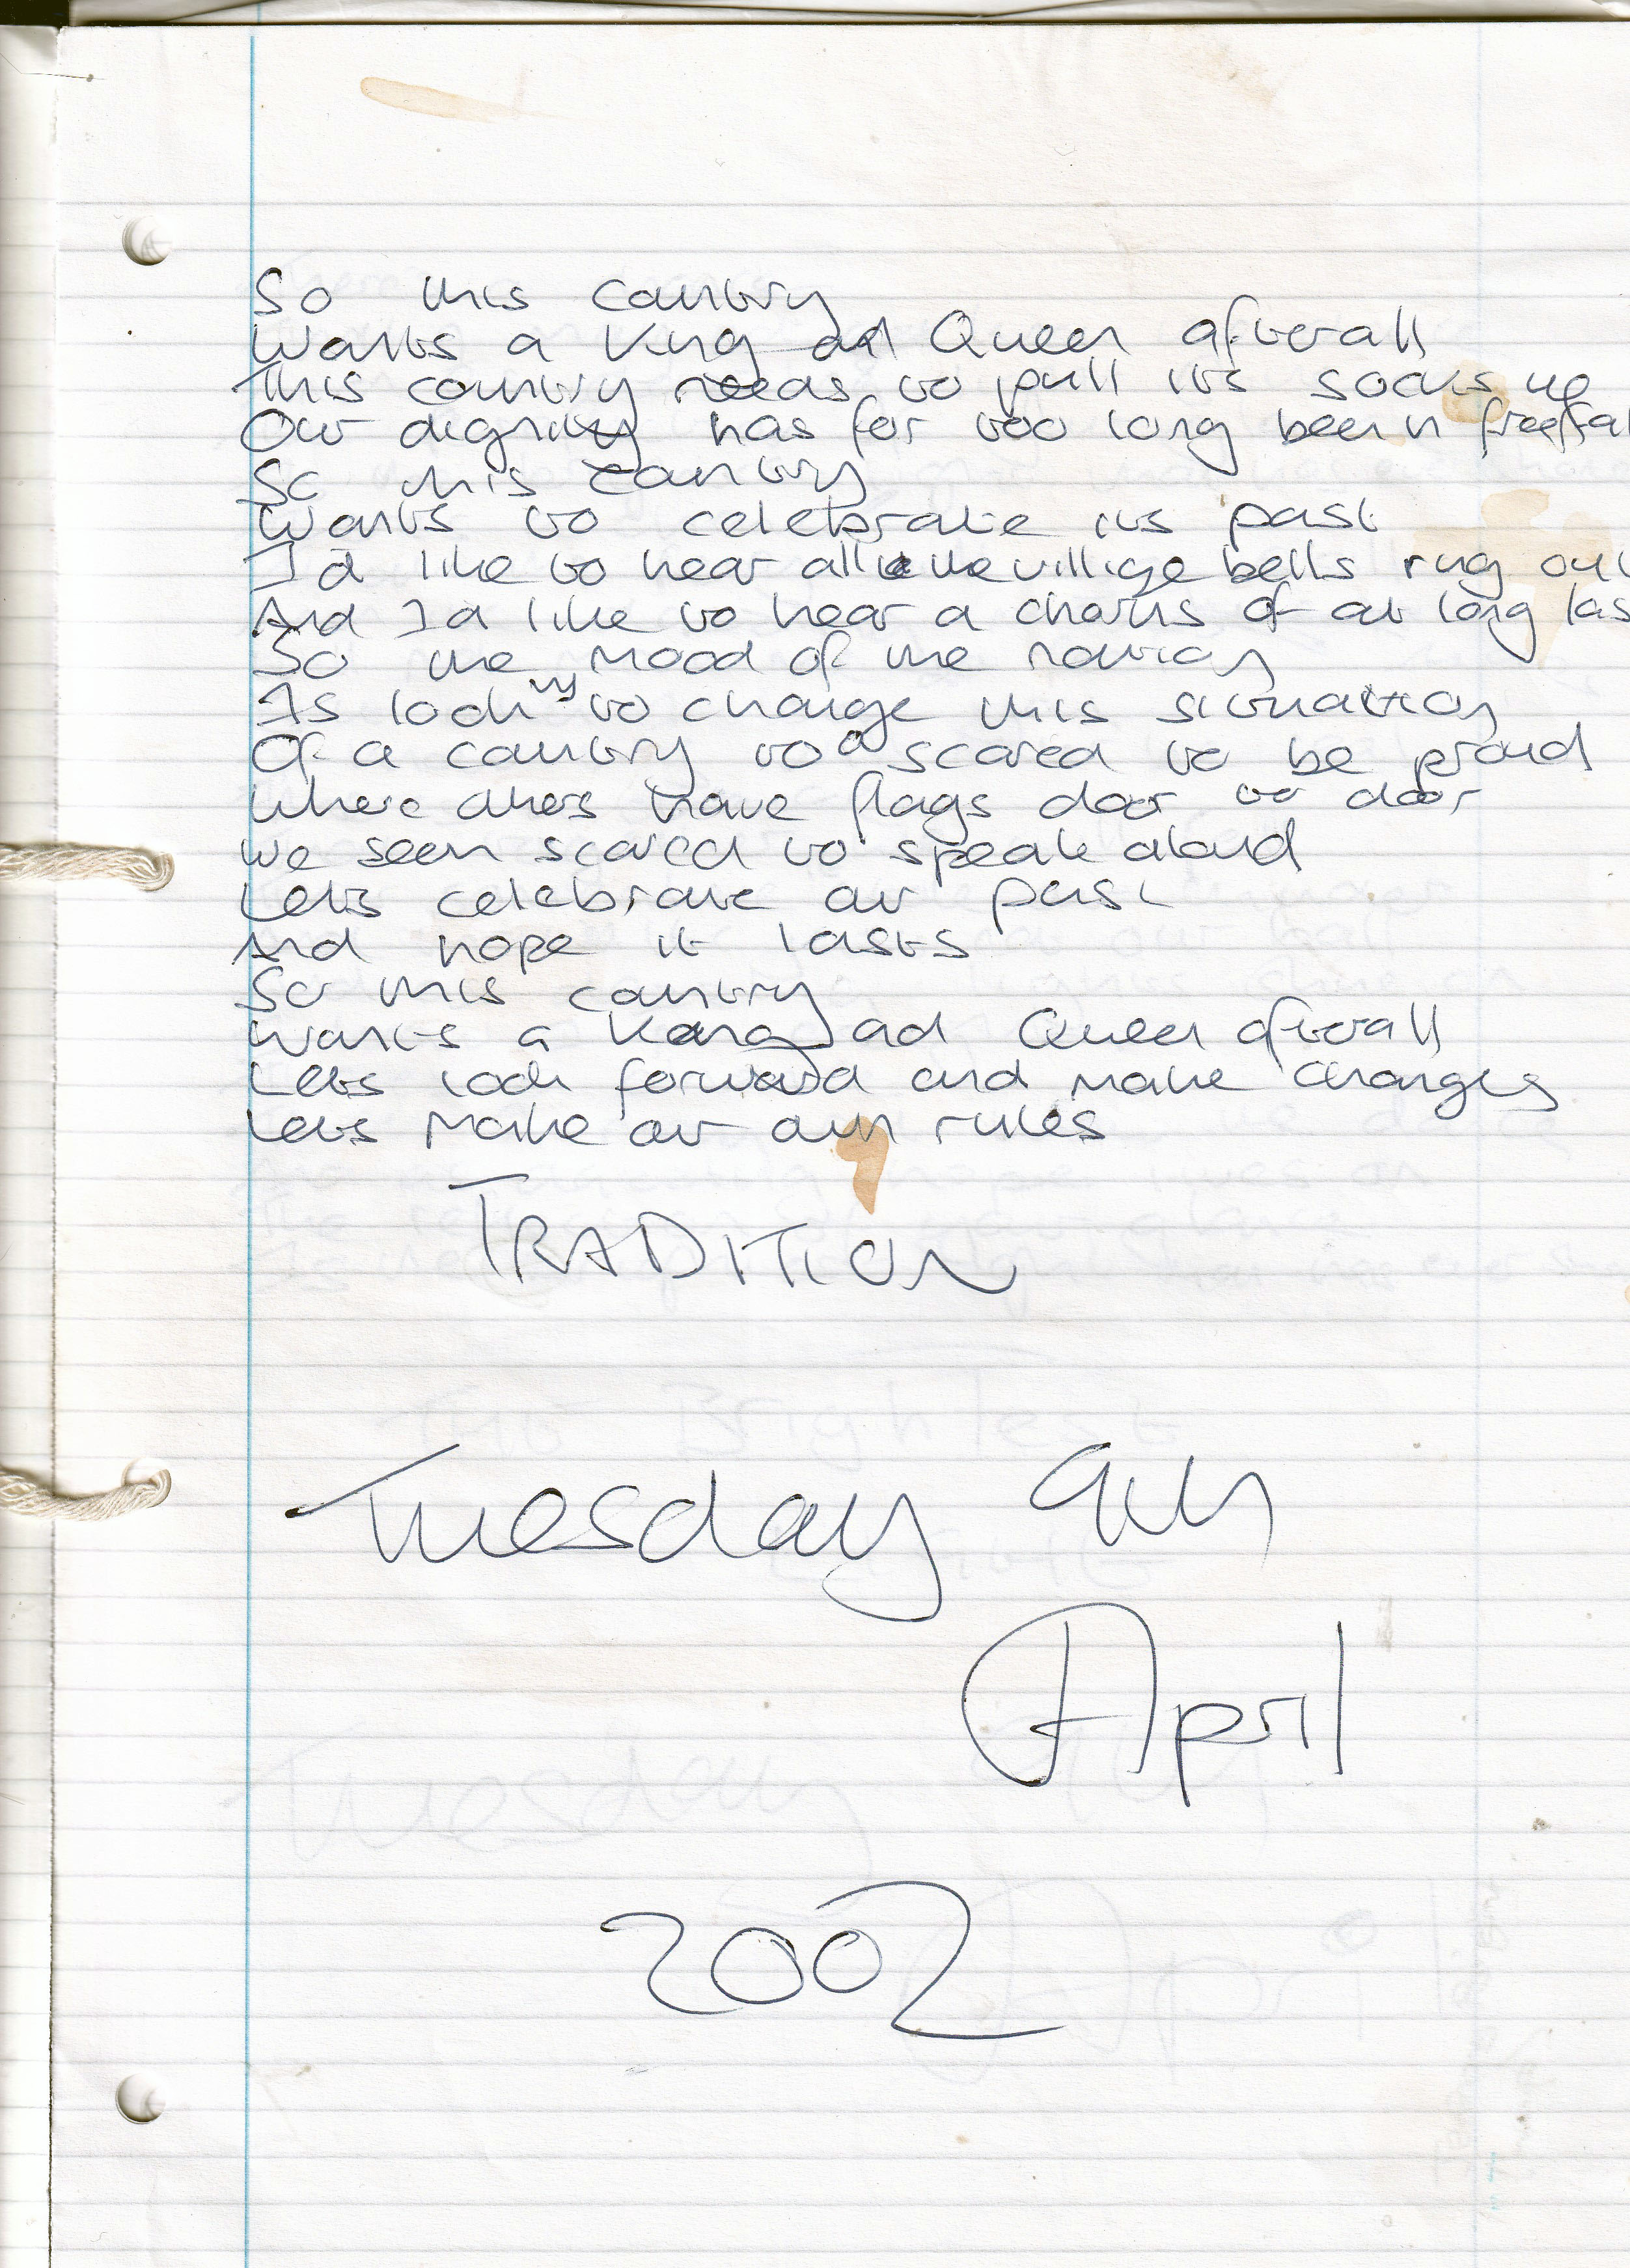 So this country
Wants a King and Queen afterall
This country needs to pull its socks up
Our dignity has for too long been in freefal
So this country
Wants to celebrate its past
Id like to hear all the villige bells ring out
And Id like to hear a chorus of at long las
So the mood of the nation
Is looking to change this situation
Of a country too scared to be proud
Where others have flags door to door
We seem scared to speak aloud
Lets celebrate our past
And hope it lasts
So this country
Wants a King and Queen afterall
Lets look forward and make changes
Lets make our own rules
TRADITION
Tuesday 9th
April
2002